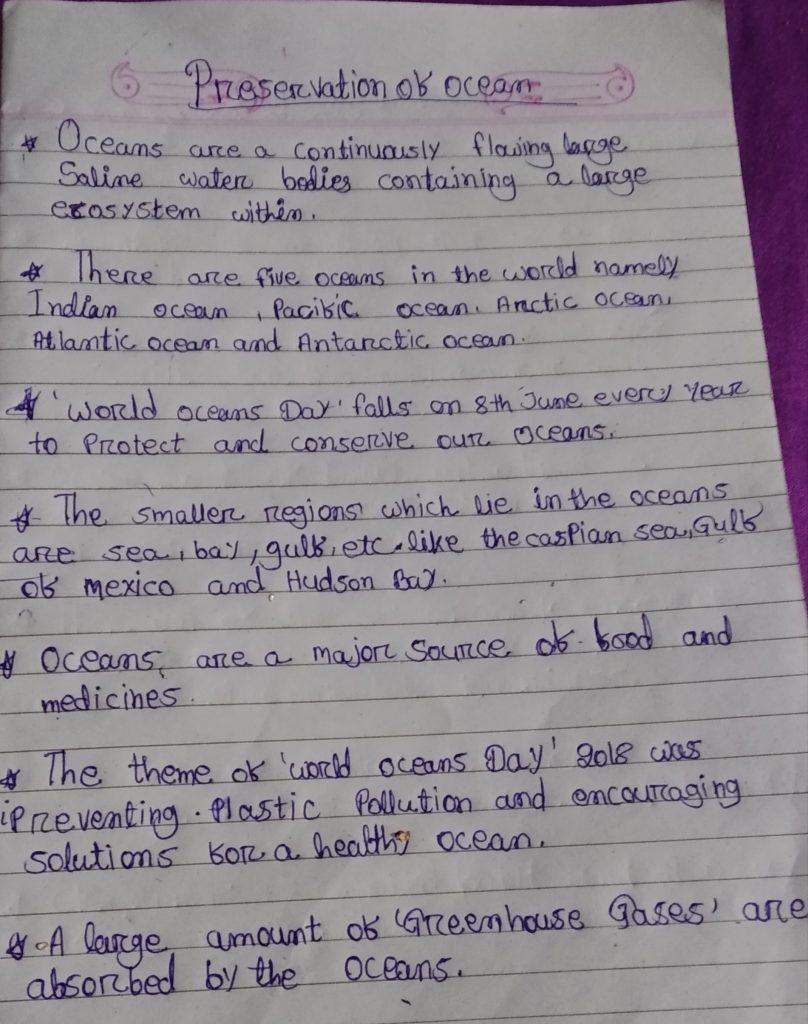 Preservation of ocean
* Oceans are a continuously flowing large
Saline water bodies containing a large
ecosystem within.
* There are five oceans in the world namely
Indian ocean, Pacific ocean, Arctic ocean,
Atlantic ocean and Antarctic ocean.
* 'World oceans Day' falls on 8th June every year
to Protect and conserve our oceans.
* The smaller regions which lie in the oceans
are sea, bay, gulf, etc. like the caspian sea, Gulf
of mexico and Hudson Bay.
* Oceans, are a major source of food and
medicines.
* The theme of 'world oceans Day' 2018 was
'Preventing Plastic Pollution and encouraging
solutions for a healthy ocean.
* A large amount of 'Greenhouse Gases' are
absorbed by the oceans.